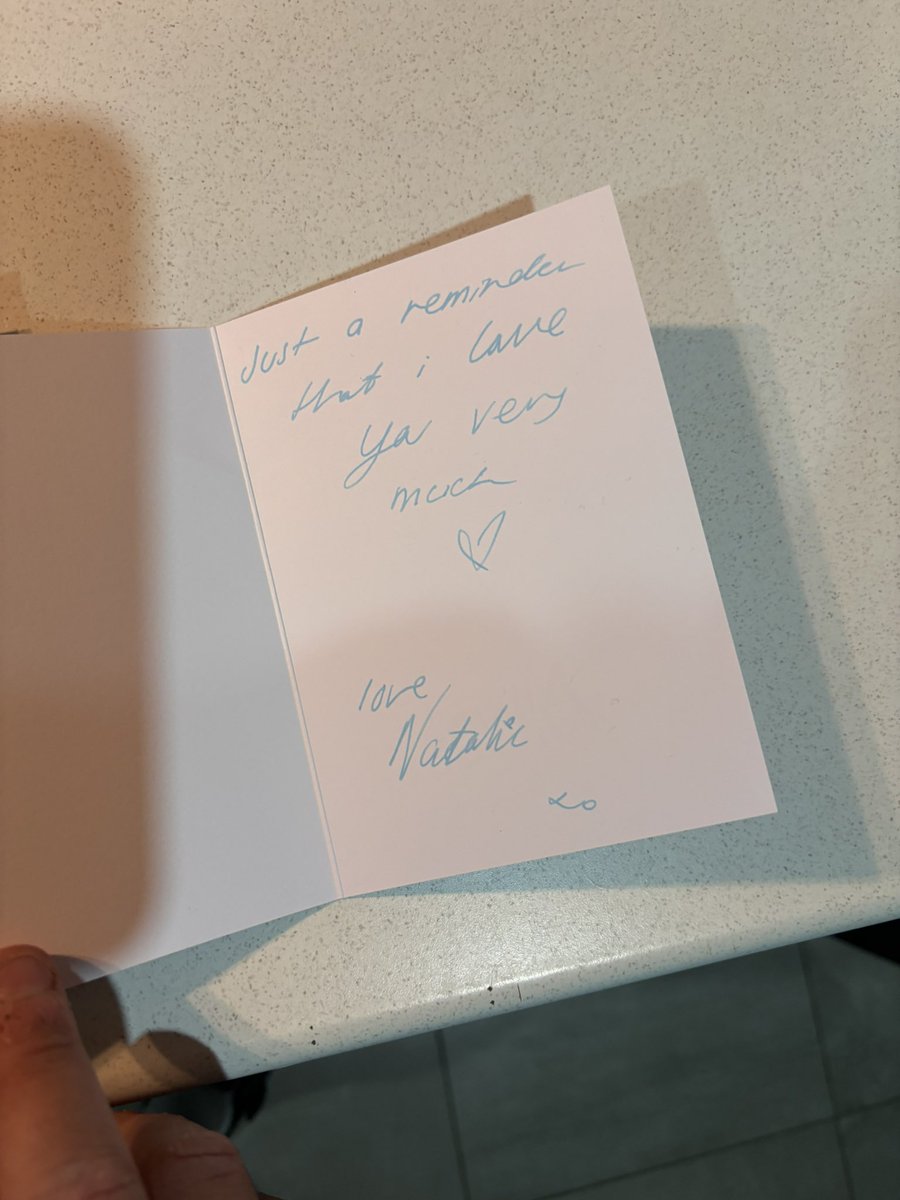 Just a reminder
that i love
ya very
much
♡
love
Natalie
xo